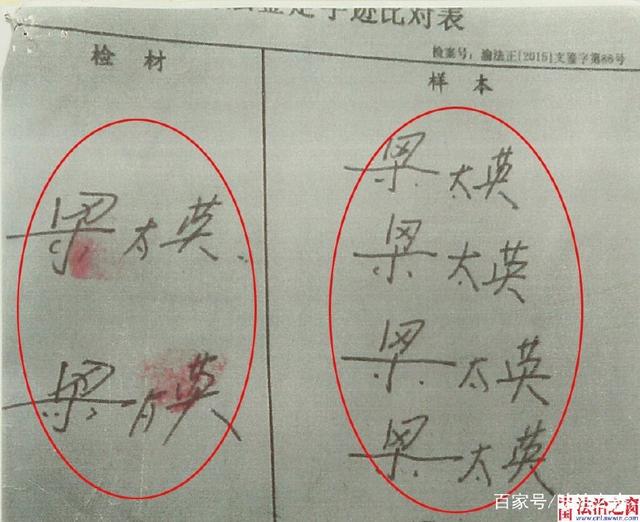 鉴定字迹比对表
检案号：渝法正[2015]文鉴字第86号
检材
样本
梁太英
梁太英
梁太英
梁太英
梁太英
梁太英
百家号/
中国法治之窗
www.cnlawwin.com